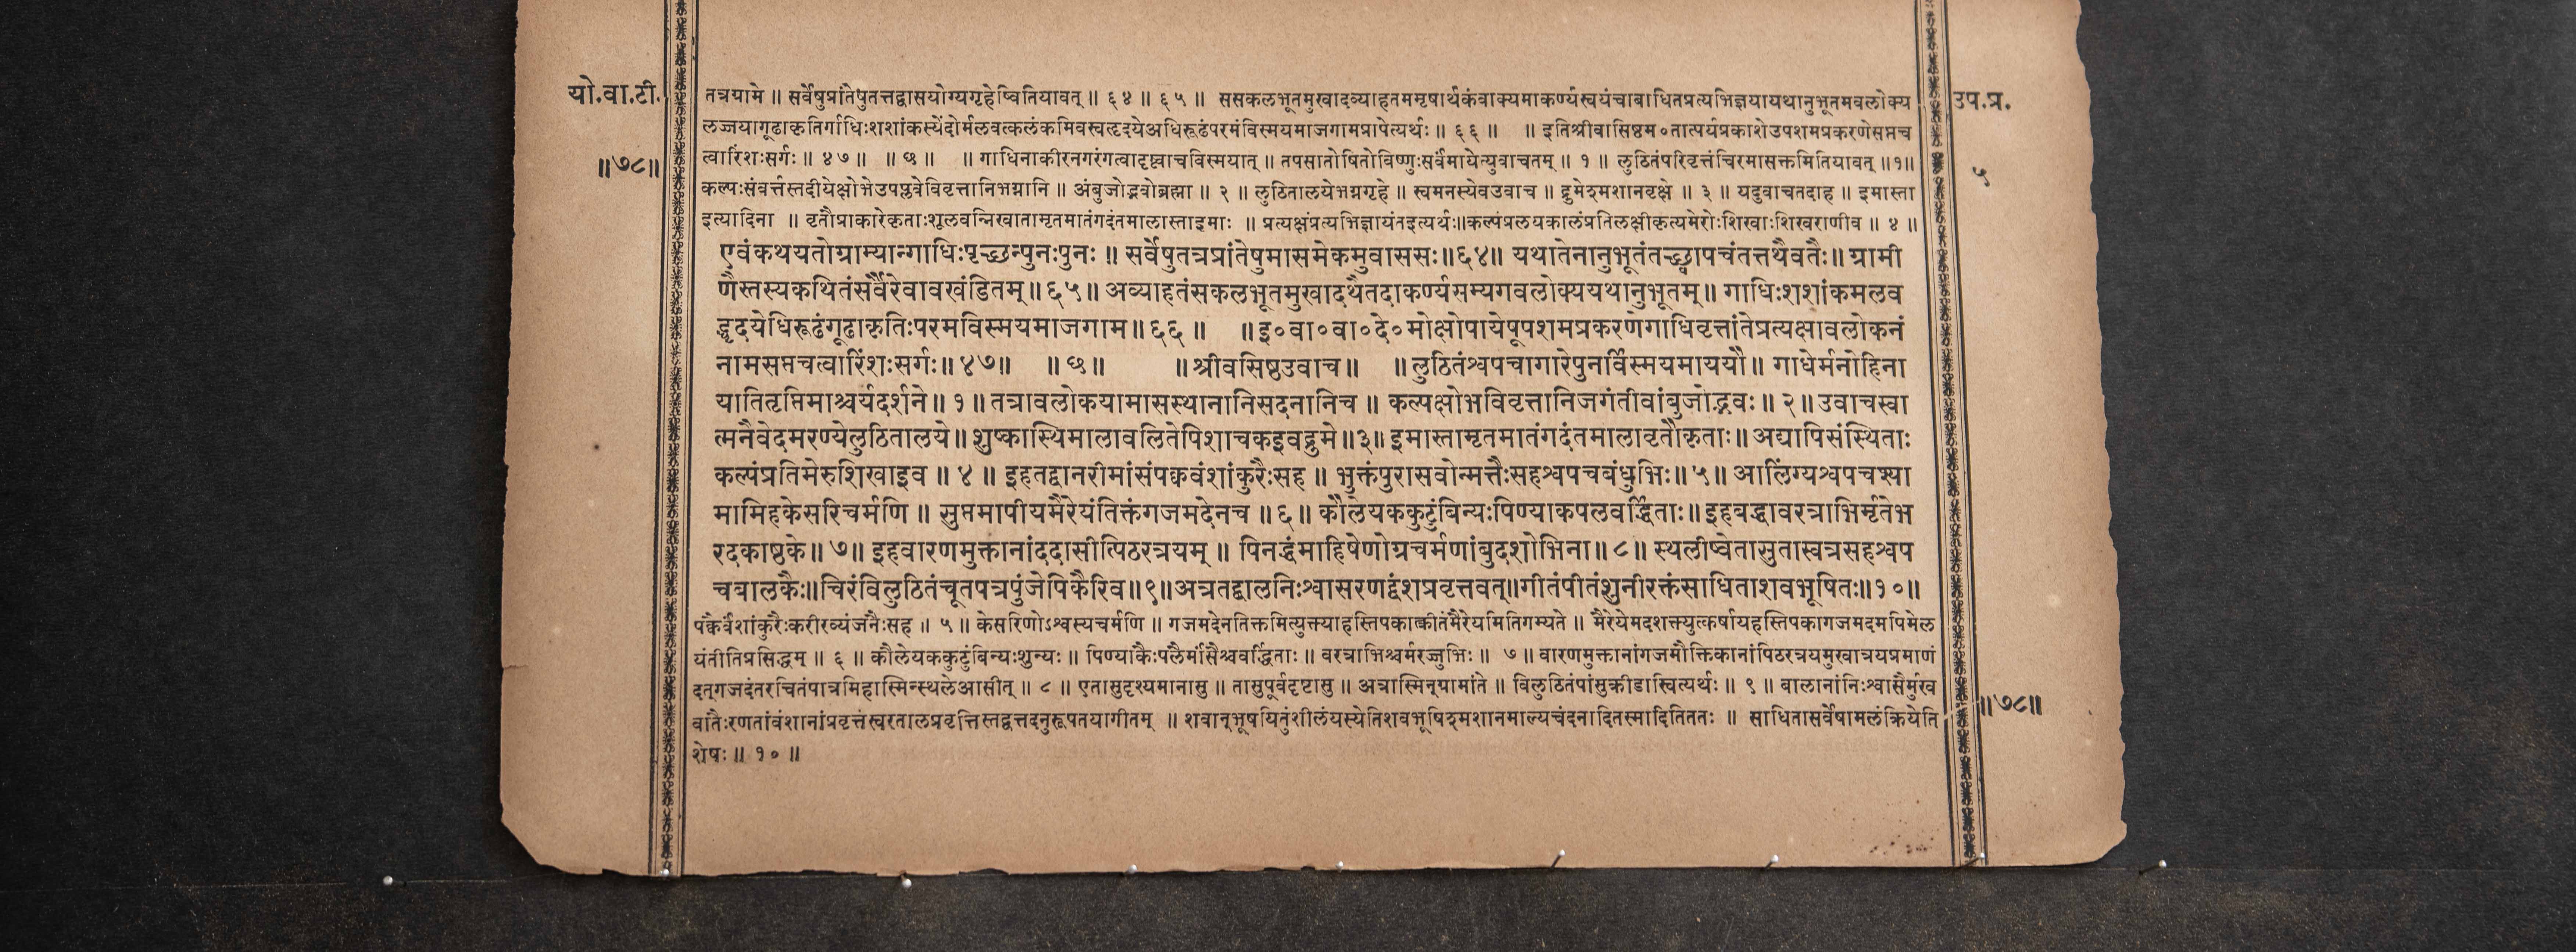 यो.वा.टी.
॥७८॥
तत्रयामे ॥ सर्वेषुप्रांतेषुतत्तद्वासयोग्यगृहेष्वितियावत् ॥ ६४ ॥ ६५ ॥ ससकलभूतमुखादव्याहतममृषार्थकंवाक्यमाकर्ण्यस्वयंचाबाधितप्रत्यभिज्ञयायथानुभूतमवलोक्य
लज्जयागूढाकृतिर्गाधिःशशांकस्येंदोर्मलवत्कलंकमिवस्वहृदयेअधिरूढंपरमंविस्मयमाजगामप्रापेत्यर्थः ॥ ६६ ॥ ॥ इतिश्रीवासिष्ठम०तात्पर्यप्रकाशेउपशमप्रकरणेसप्तच
त्वारिंशःसर्गः ॥ ४७ ॥ ॥ छ ॥ ॥ गाधिनाकीरनगरंगत्वादृष्ट्वाचविस्मयात् ॥ तपसातोषितोविष्णुःसर्वंमायेत्युवाचतम् ॥ १ ॥ लुठितंपरिवृत्तंचिरमासक्तमितियावत् ॥१॥
कल्पःसंवर्त्तस्तदीयेक्षोभेउपप्लवेविवृत्तानिभग्नानि ॥ अंबुजोद्भवोब्रह्मा ॥ २ ॥ लुठितालयेभग्नगृहे ॥ स्वमनस्येवउवाच ॥ द्रुमेश्मशानवृक्षे ॥ ३ ॥ यदुवाचतदाह ॥ इमास्ता
इत्यादिना ॥ वृतौप्राकारेकृताःशूलवन्निखातामृतमातंगदंतमालास्ताइमाः ॥ प्रत्यक्षंप्रत्यभिज्ञायंतइत्यर्थः॥कल्पंप्रलयकालंप्रतिलक्षीकृत्यमेरोःशिखाःशिखराणीव ॥ ४ ॥
एवंकथयतोग्राम्यान्गाधिःपृच्छन्पुनःपुनः ॥ सर्वेषुतत्रप्रांतेषुमासमेकमुवाससः॥६४॥ यथातेनानुभूतंतच्छ्वापचंतत्तथैवतैः॥ ग्रामी
णैस्तस्यकथितंसर्वैरेवावखंडितम्॥६५॥ अव्याहतंसकलभूतमुखादथैतदाकर्ण्यसम्यगवलोक्ययथानुभूतम्॥ गाधिःशशांकमलव
द्धृदयेधिरूढंगूढाकृतिःपरमविस्मयमाजगाम॥६६॥ ॥इ०वा०वा०दे०मोक्षोपायेषूपशमप्रकरणेगाधिवृत्तांतेप्रत्यक्षावलोकनं
नामसप्तचत्वारिंशःसर्गः॥४७॥ ॥छ॥ ॥श्रीवसिष्ठउवाच॥ ॥लुठितंश्वपचागारेपुनर्विस्मयमाययौ॥ गाधेर्मनोहिना
यातितृप्तिमाश्चर्यदर्शने॥ १ ॥ तत्रावलोकयामासस्थानानिसदनानिच ॥ कल्पक्षोभविवृत्तानिजगंतीवांबुजोद्भवः॥ २॥ उवाचस्वा
त्मनैवेदमरण्येलुठितालये॥ शुष्कास्थिमालावलितेपिशाचकइवद्रुमे॥३॥ इमास्तामृतमातंगदंतमालावृतौकृताः॥ अद्यापिसंस्थिताः
कल्पंप्रतिमेरुशिखाइव ॥ ४ ॥ इहतद्वानरीमांसंपक्कवंशांकुरैःसह ॥ भुक्तंपुरासवोन्मत्तैःसहश्वपचबंधुभिः॥ ५॥ आलिंग्यश्वपचश्या
मामिहकेसरिचर्मणि ॥ सुप्तमापीयमैरेयंतिक्तंगजमदेनच ॥६॥ कौलेयककुटुंबिन्यःपिण्याकपलवर्द्धिताः॥ इहबद्धावरत्राभिर्मृतेभ
रदकाष्ठके॥ ७॥ इहवारणमुक्तानांददासीत्पिठरत्रयम् ॥ पिनद्धंमाहिषेणोग्रचर्मणांबुदशोभिना॥ ८॥ स्थलीष्वेतासुतास्वत्रसहश्वप
चबालकैः॥चिरंविलुठितंचूतपत्रपुंजेपिकैरिव॥९॥अत्रतद्बालनिःश्वासरणद्वंशप्रवृत्तवत्॥गीतंपीतंशुनीरक्तंसाधिताशवभूषितः॥१०॥
पक्कैर्वंशांकुरैःकरीरव्यंजनैःसह ॥ ५ ॥ केसरिणोऽश्वस्यचर्मणि ॥ गजमदेनतिक्तमित्युक्त्याहस्तिपकात्क्रीतंमैरेयमितिगम्यते ॥ मैरेयेमदशक्त्युत्कर्षायहस्तिपकागजमदमपिमेल
यंतीतिप्रसिद्धम् ॥ ६ ॥ कौलेयककुटुंबिन्यःशुन्यः ॥ पिण्याकैःपलैर्मांसैश्चवर्द्धिताः ॥ वरत्राभिश्चर्मरज्जुभिः ॥ ७ ॥ वारणमुक्तानांगजमौक्तिकानांपिठरत्रयमुखात्रयप्रमाणं
दत्गजदंतरचितंपात्रमिहास्मिन्स्थलेआसीत् ॥ ८ ॥ एतासुदृश्यमानासु ॥ तासुपूर्वदृष्टासु ॥ अत्रास्मिन्ग्रामांते ॥ विलुठितंपांसुक्रीडास्वित्यर्थः ॥ ९ ॥ बालानांनिःश्वासैर्मुख
वातैःरणतांवंशानांप्रवृत्तंस्वरतालप्रवृत्तिस्तद्वत्तदनुरूपतयागीतम् ॥ शवान्भूषयितुंशीलंयस्येतिशवभूषिश्मशानमाल्यचंदनादितस्मादितिततः ॥ साधितासर्वेषामलंक्रियेति
शेषः ॥ १० ॥
उप.प्र.
५
॥७८॥